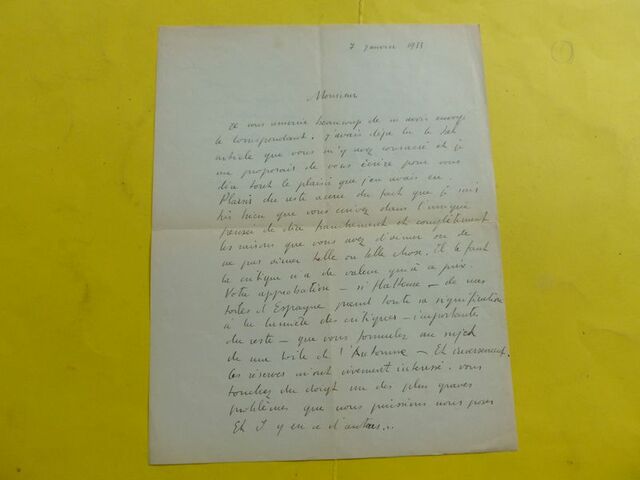 7 janvier 1933
Monsieur
Je vous remercie beaucoup de m'avoir envoyé
le Correspondant. J'avais déjà lu le bel
article que vous m'y avez consacré et je
me proposais de vous écrire pour vous
dire tout le plaisir que j'en avais eu.
Plaisir du reste accru du fait que je sais
très bien que vous écrivez dans l'unique
pensée de dire franchement et complètement
les raisons que vous avez d'aimer ou de
ne pas aimer telle ou telle chose. Et il faut
la critique n'a de valeur qu'à ce prix.
Votre approbation – si flatteuse – de mes
toiles d'Espagne prend toute sa signification
à la lumière des critiques – importantes
du reste – que vous formulez au sujet
de ma toile de l'Automne – Et inversement.
Les réserves m'ont vivement intéressé. Vous
touchez du doigt un des plus graves
problèmes que nous puissions nous poser
Et il y en a d'autres...